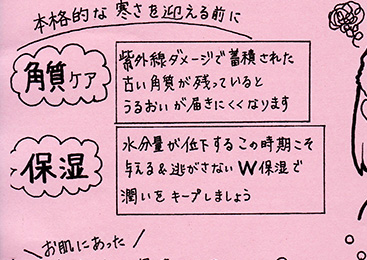 本格的な寒さを迎える前に
角質ケア
紫外線ダメージで蓄積された
古い角質が残っていると
うるおいが届きにくくなります
保湿
水分量が低下するこの時期こそ
与える&逃がさないW保湿で
潤いをキープしましょう
お肌にあった